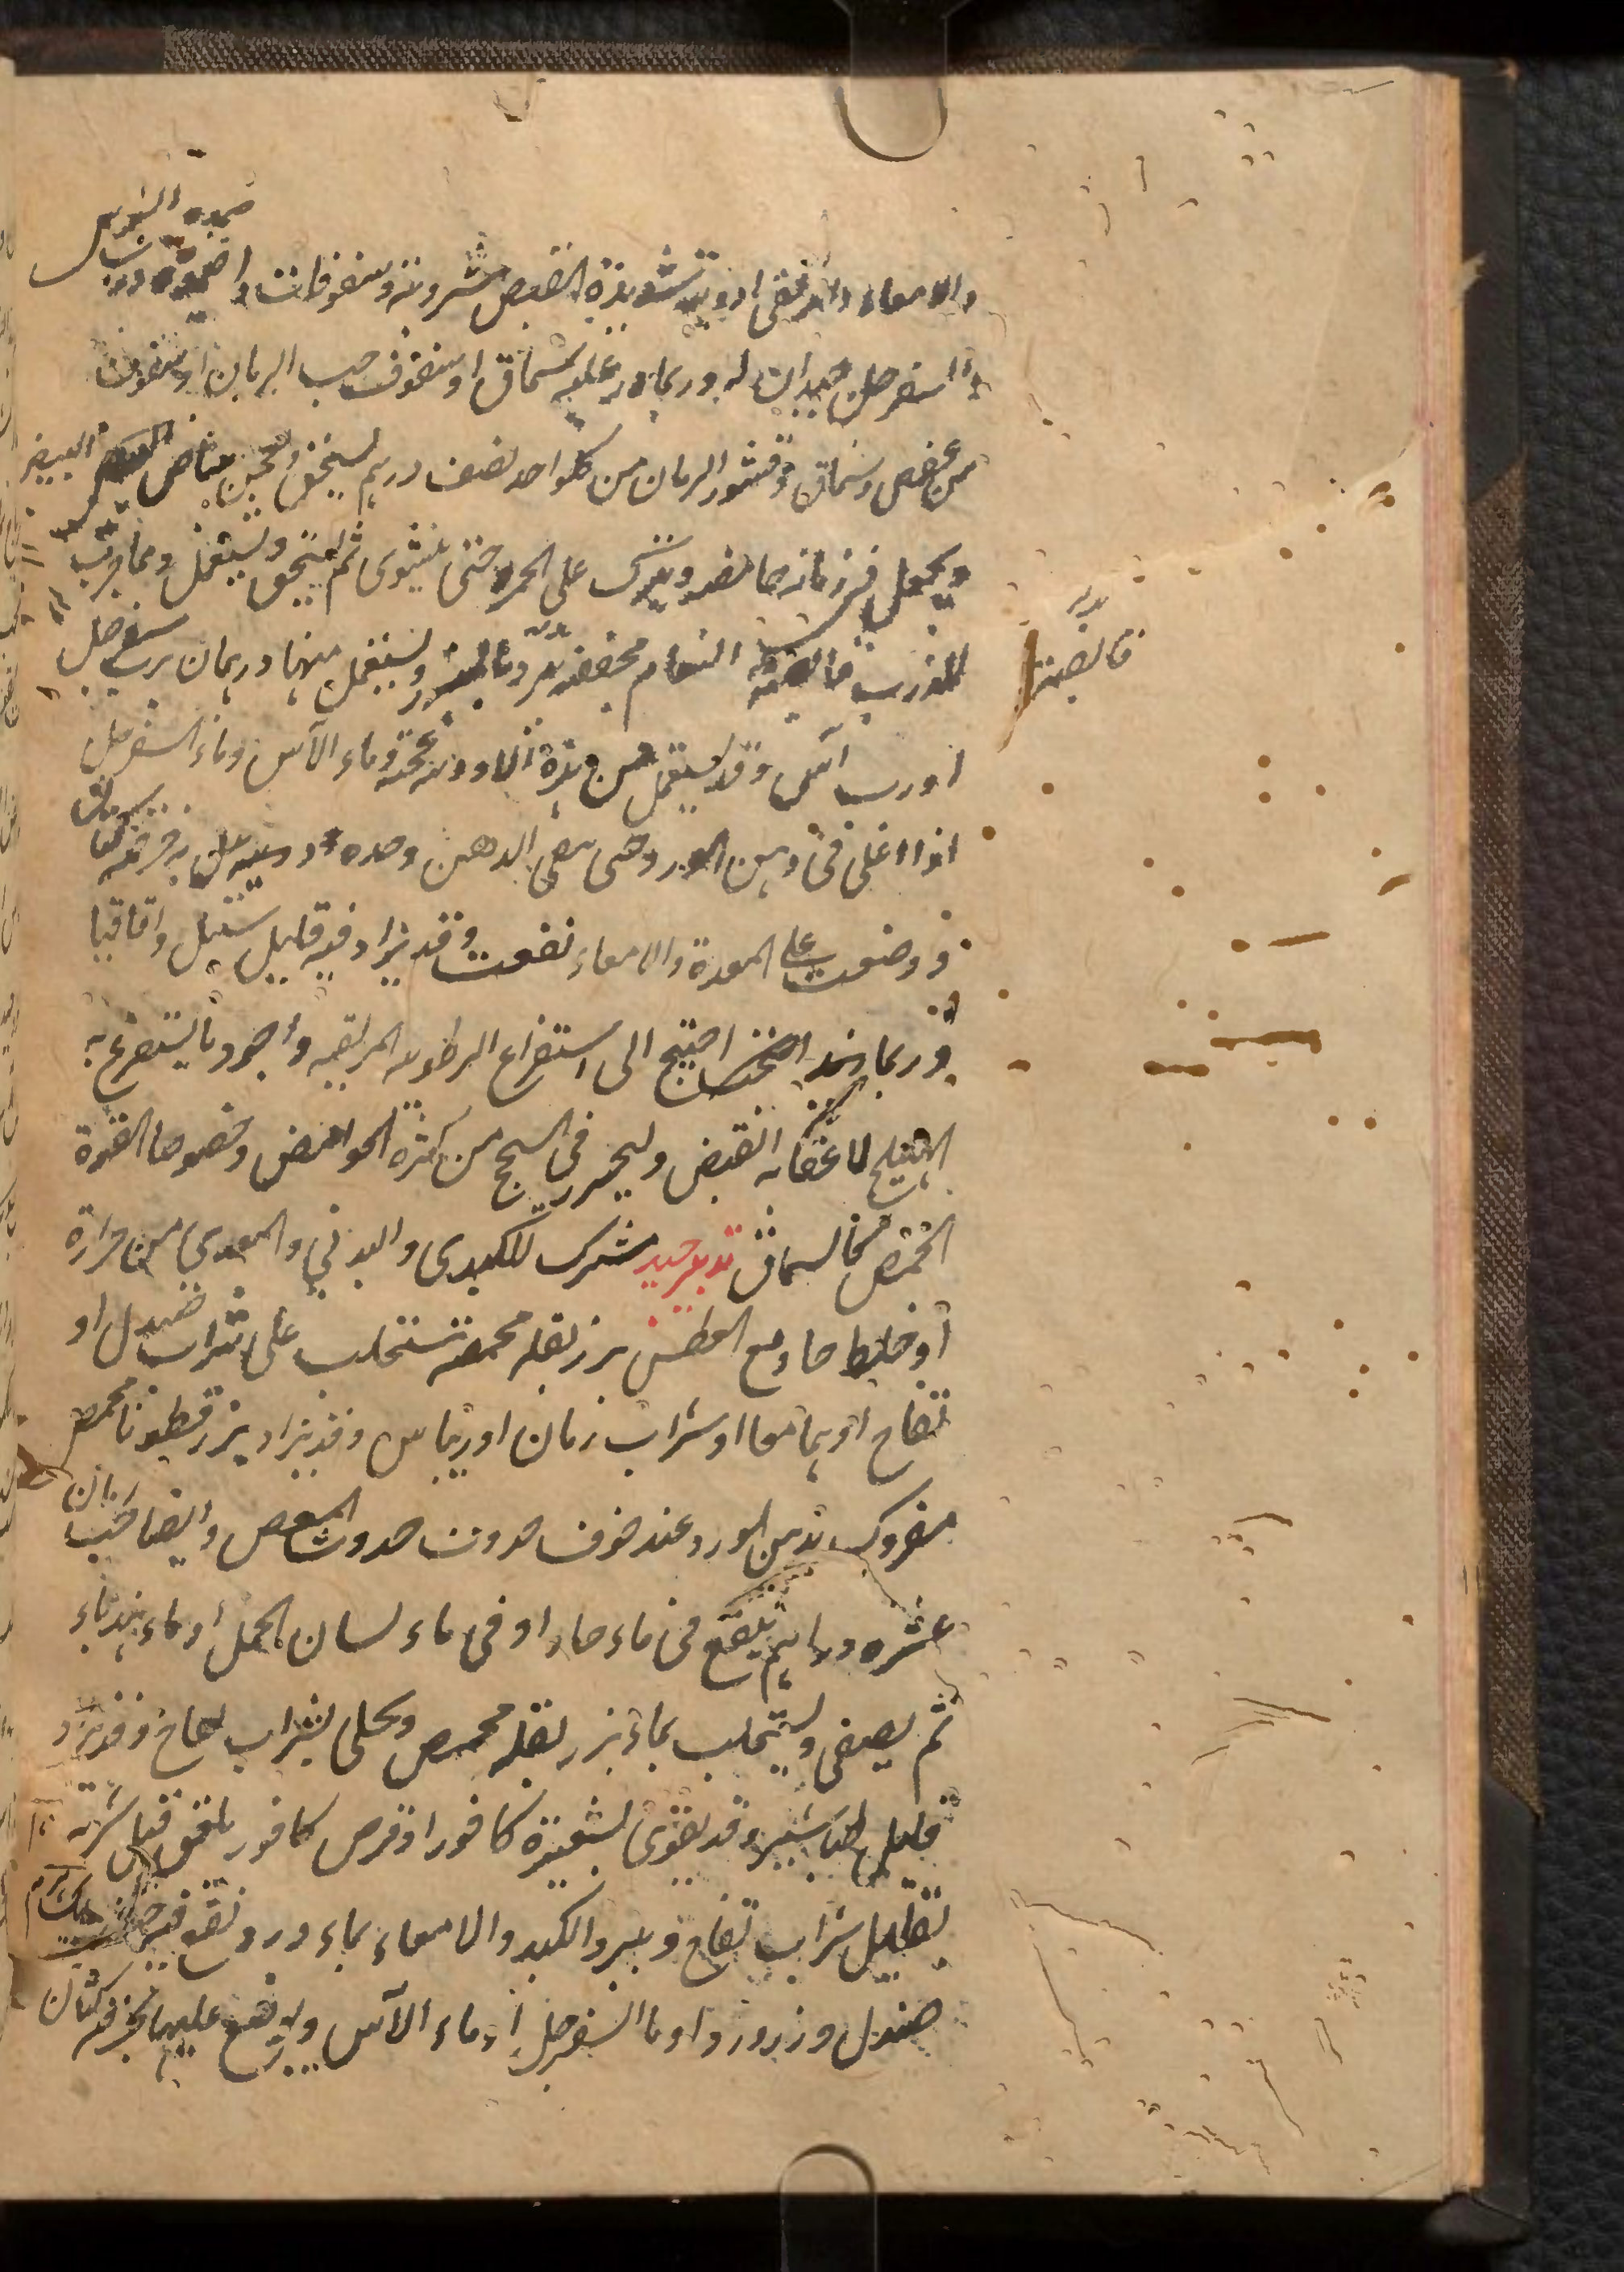 ضمده النبوس
والامعاء والدقاق ادوية شديدة القبض مشروبة وسفوفات واضمدة ورب
السفرجل جيدان له وربما ذر عليه سماق او سفوف حب الرمان او سفوف
من عفص وسماق وقشور الرمان من كلواحد نصف درهم يسحق ويعجن ببياض البيض
ويجعل في رمانة حامضة ويترك على الجمر حتى ينشوى ثم يسحق ويستعمل ومما جرب
للذرب قانصة النعام مجففة تبرد بالمبرد ويستعمل منها درهمان برب سفرجل
او رب آس وقد يستعمل من هذه الادوية حقنة وماء الآس وماء السفرجل
اذا اغلى فى دهن الورد حتى يبقى الدهن وحده وبل به خرقة كتان
ووضعت على المعدة والامعاء نفعت وقد يزاد فيه قليل سنبل واقاقيا
وربما احتيج الى استفراغ الرطوبة المزلقة واجود ما يستفرغ به
الهليلج لاعقابه القبض وليحذر فى السحج من كثرة الحوامض وخصوصا القوة
الحمض كالسماق تدبير جيد مشترك للكبدى والبدنى والمعدى من حرارة
او خلط حاد مع العطش بزر بقلة محمصة تستحلب على شراب صندل او
تفاح او بهما معا او شراب رمان او ريباس وقد يزاد بزر قطونا محمص
مفروك بدهن الورد عند خوف حدوث حدوث المغص وايضا حب رمان
عشرة دراهم ينقع فى ماء حار او فى ماء لسان الحمل او ماء هندباء
ثم يصفى ويستحلب بماء بزر بقلة محمص ويحلى بشراب تفاح وقد يزاد
قليل طباشير وقد يقوى بشعيرة كافور او قرص كافور يلعق قبل شربه
بقليل شراب تفاح ويبرد الكبد والامعاء بماء ورد نقع فيه
صندل وزر ورد او ماء السفرجل او ماء الآس ويوضع عليها بخرقة كتان
قانصة